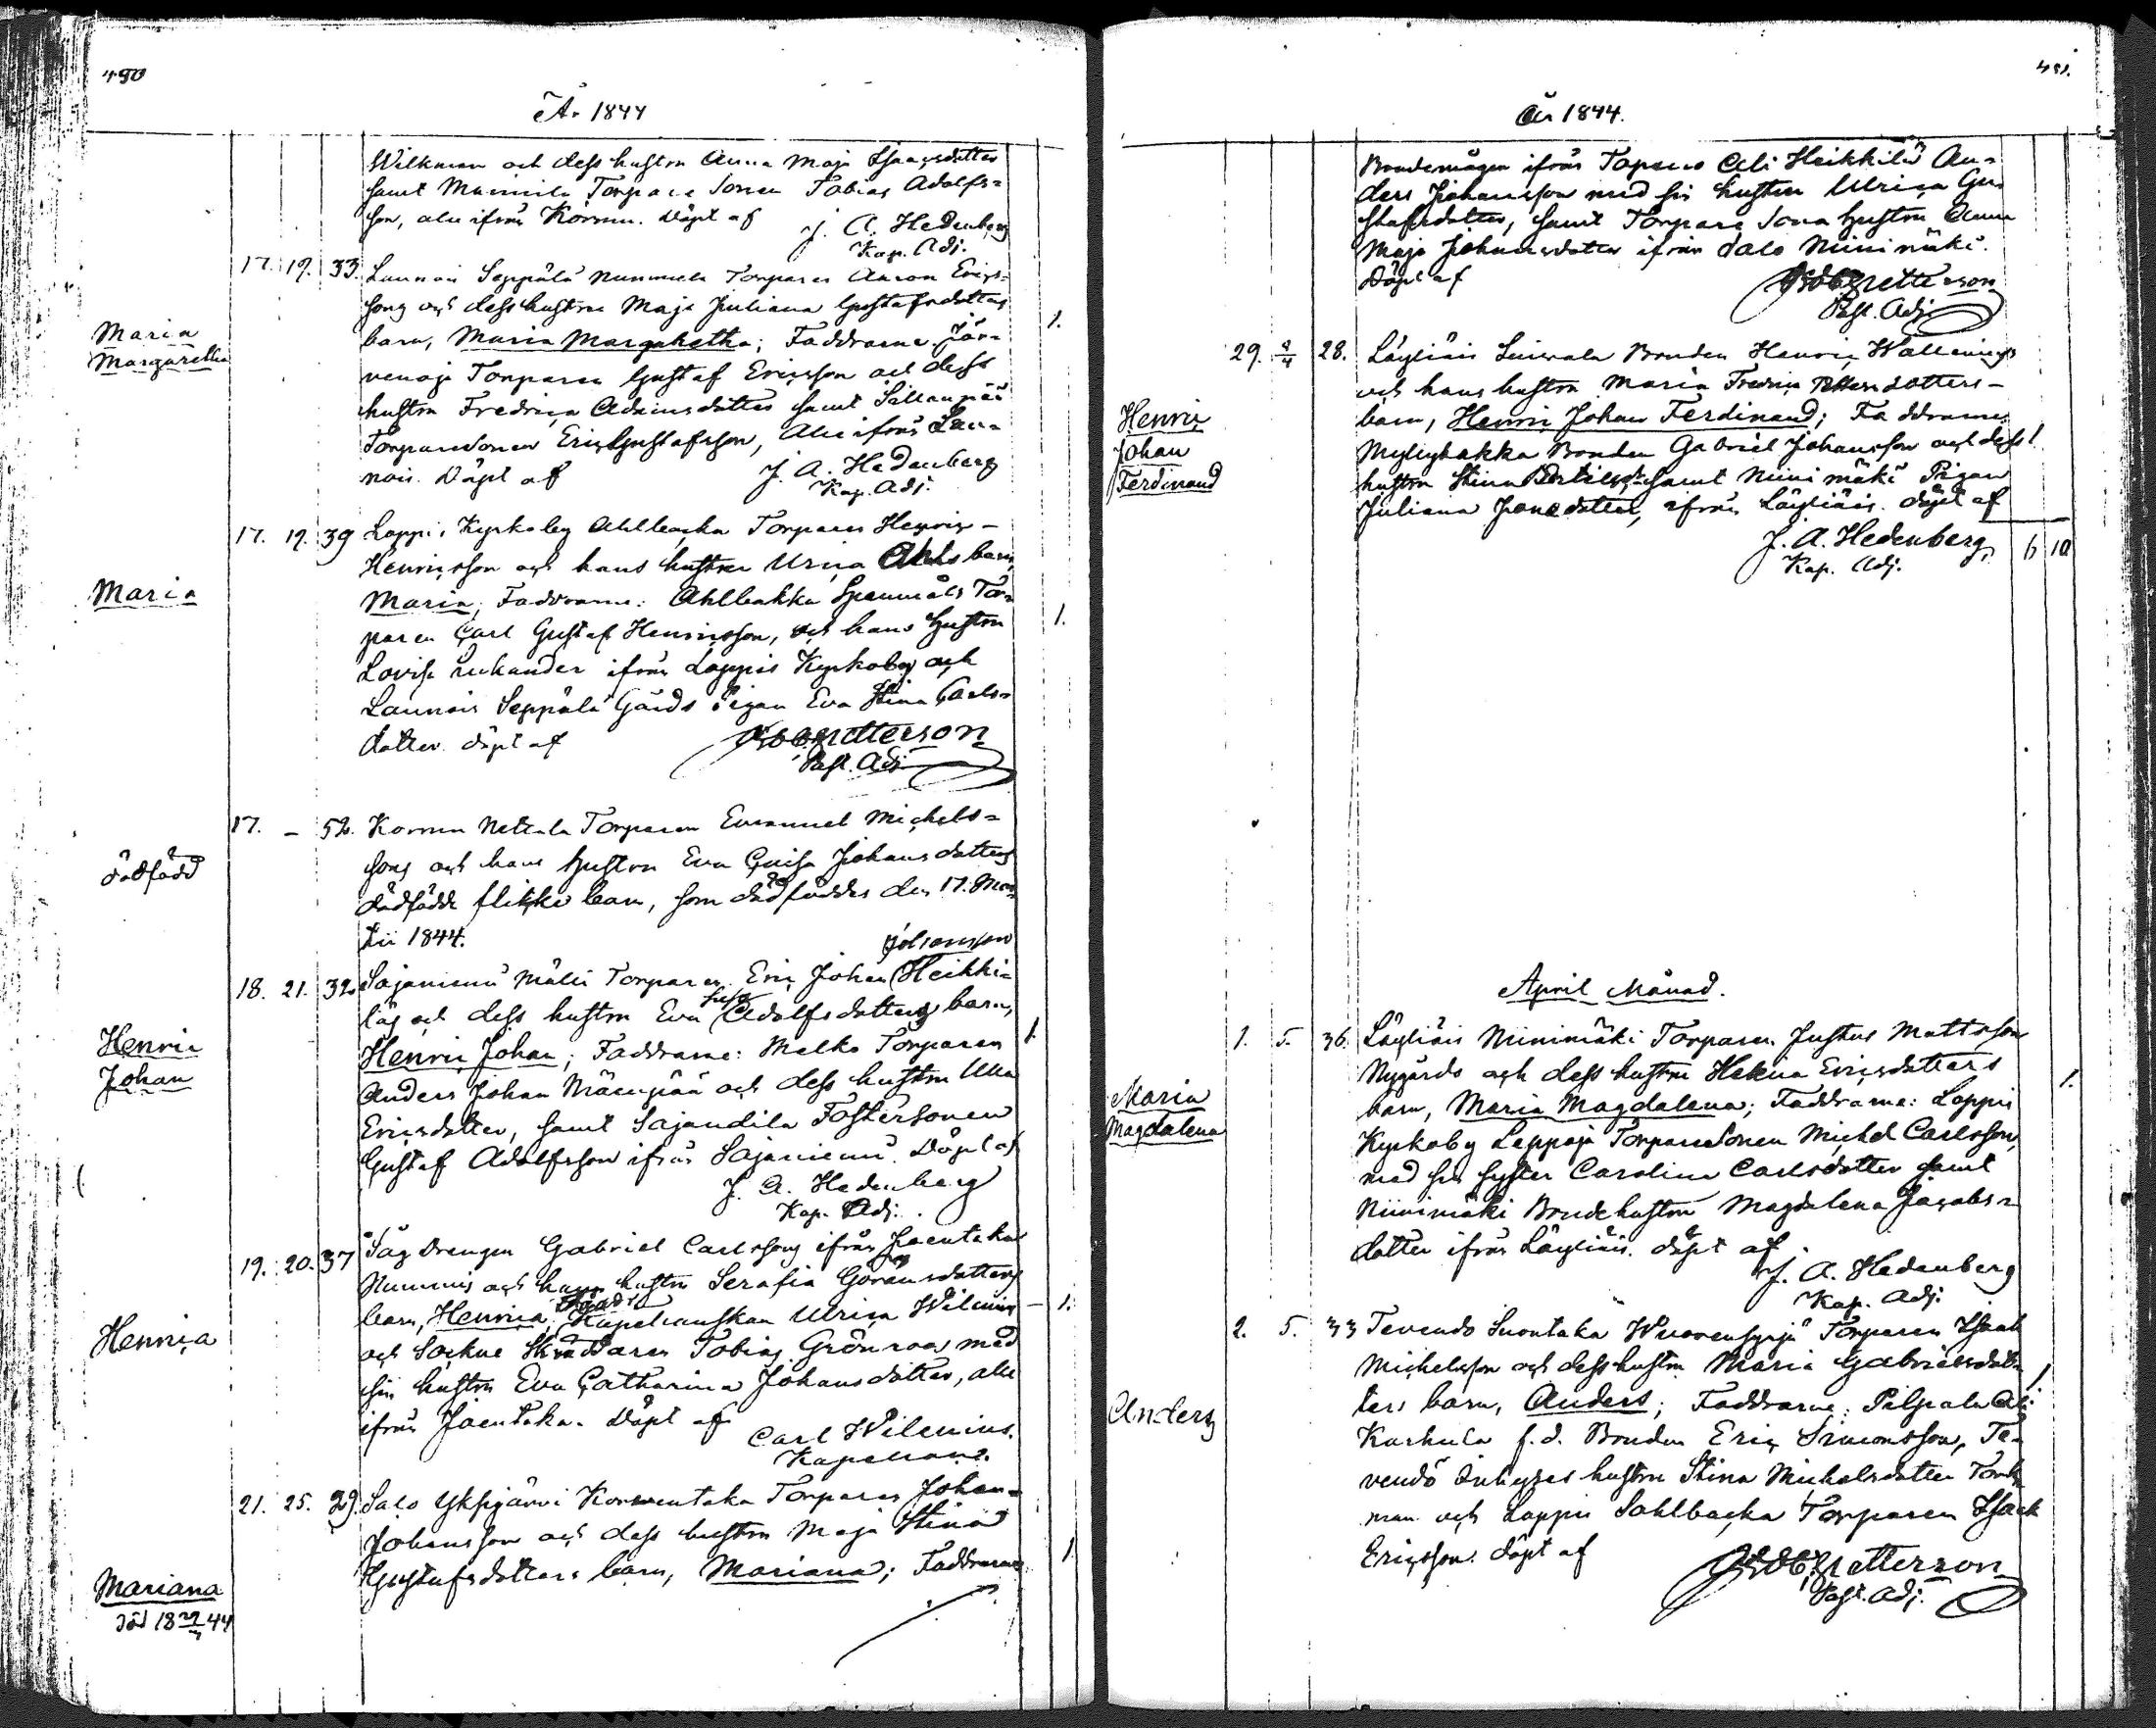 490
År 1844
Wilkman och dess hustru Anna Maja Isaacsdotter
samt Torpare Sonen Tobias Adolfs-
son, alla ifrån Kormu. Döpt af
J. A. Hedenberg
Kap. Adj.
Maria
Margaretha
17. 19. 33. Launois Seppälä Nummela Torparen Aaron Erics-
sons och dess hustrus Maja Juliana Gustafsdotters
barn, Maria Margaretha; Faddrarne: Jär-
venoja Torparen Gustaf Ericsson och dess
hustru Fredrica Adamsdotter samt Sillanpää
Torparesonen Eric Gustafsson, alla ifrån Lau-
nois. Döpt af
J. A. Hedenberg
Kap. Adj.
1.
Maria
17. 19. 39 Loppis Kyrkoby Ahlbacka Torparen Henric
Henricsson och hans hustrus Ulrica Ahls barn,
Maria; Faddrarne: Ahlbakka Spanmåls Tor-
paren Carl Gustaf Henricsson, och hans hustru
Lovisa ifrån Loppis Kyrkoby och
Launois Seppälä Gårds Pigan Eva Stina Carls-
dotter. döpt af
Petterson
Past. Adj.
1.
dödfödd
17. – 52. Kormu Nettala Torparen Emanuel Michels-
sons och hans hustrus Eva Cajsa Johansdotters
dödfödde flicko barn, som dödföddes den 17. Mar-
tii 1844.
Johansson
Henric
Johan
18. 21. 32. Sajaniemi Torparen Eric Johan Heikki-
läs och dess hustrus Eva Adolfsdotters barn,
Henric Johan; Faddrarne: Melko Torparen
Anders Johan Mäenpää och dess hustru Ulla
Ericsdotter, samt Sajandila Fostersonen
Gustaf Adolfsson ifrån Sajaniemi. Döpt af
J. A. Hedenberg
Kap. Adj.
1.
Henrica
19. 20. 37 Såg Drengen Gabriel Carlssons ifrån Jaentaka
Nummis och hans hustrus Serafia Göransdotters
barn, Henrica, Faddr. Kapellanskan Ulrica Wilenius
och Sockne Skräddaren Tobias Grönroos med
sin hustru Eva Catharina Johansdotter, alla
ifrån Jaentaka. Döpt af
Carl Wilenius.
Kapellan.
1.
Mariana
död 18 44
21. 25. 29. Salo Yksjärvi Torparen Johan
Johansson och dess hustru Maja Stina
Gustafsdotters barn, Mariana; Faddrarne
1
491.
År 1844.
Bondemågen ifrån Topeno Ali Heikkilä An-
ders Johansson med sin hustru Ulrica Gu-
stafsdotter, samt Torpare Sona hustrun Anna
Maja Johansdotter ifrån Salo Niinimäki.
Döpt af
Petterson
Past. Adj.
Henric
Johan
Ferdinand
29. 28. Läyliäis Suivala Bonden Henric Wallenius
och hans hustru Maria Fredrica Pettersdotters
barn, Henric Johan Ferdinand; Faddrarne
Myllykakka Bonden Gabriel Johansson och dess
hustru Stina Bertilsd:r samt Niinimäki Pigan
Juliana Jonædotter, ifrån Läyliäis. döpt af
J. A. Hedenberg,
Kap. Adj.
1
6 10
April Månad.
Maria
Magdalena
1. 5. 36. Läyliäis Niinimäki Torparen Justus Mattsson
Nygårds och dess hustru Helena Ericsdotters
barn, Maria Magdalena; Faddrarne: Loppis
Kyrkoby Leppoja Torparesonen Michel Carlsson,
med sin syster Carolina Carlsdotter samt
Niinimäki Bondehustrun Magdalena Jacobs-
dotter ifrån Läyliäis. döpt af
J. A. Hedenberg
Kap. Adj.
1.
Anders
2. 5. 33 Tevendö Suontaka Torparen Isaac
Michelsson och dess hustru Maria Gabrielsdot-
ters barn, Anders; Faddrarne: Pilpala Ali
Karhula f.d. Bonden Eric Simonsson, Te-
vendö Inhyses hustrun Stina Michelsdotter
man och Loppis Sahlbacka Torparen Isack
Ericsson. döpt af
Petterson
Past. Adj.
1